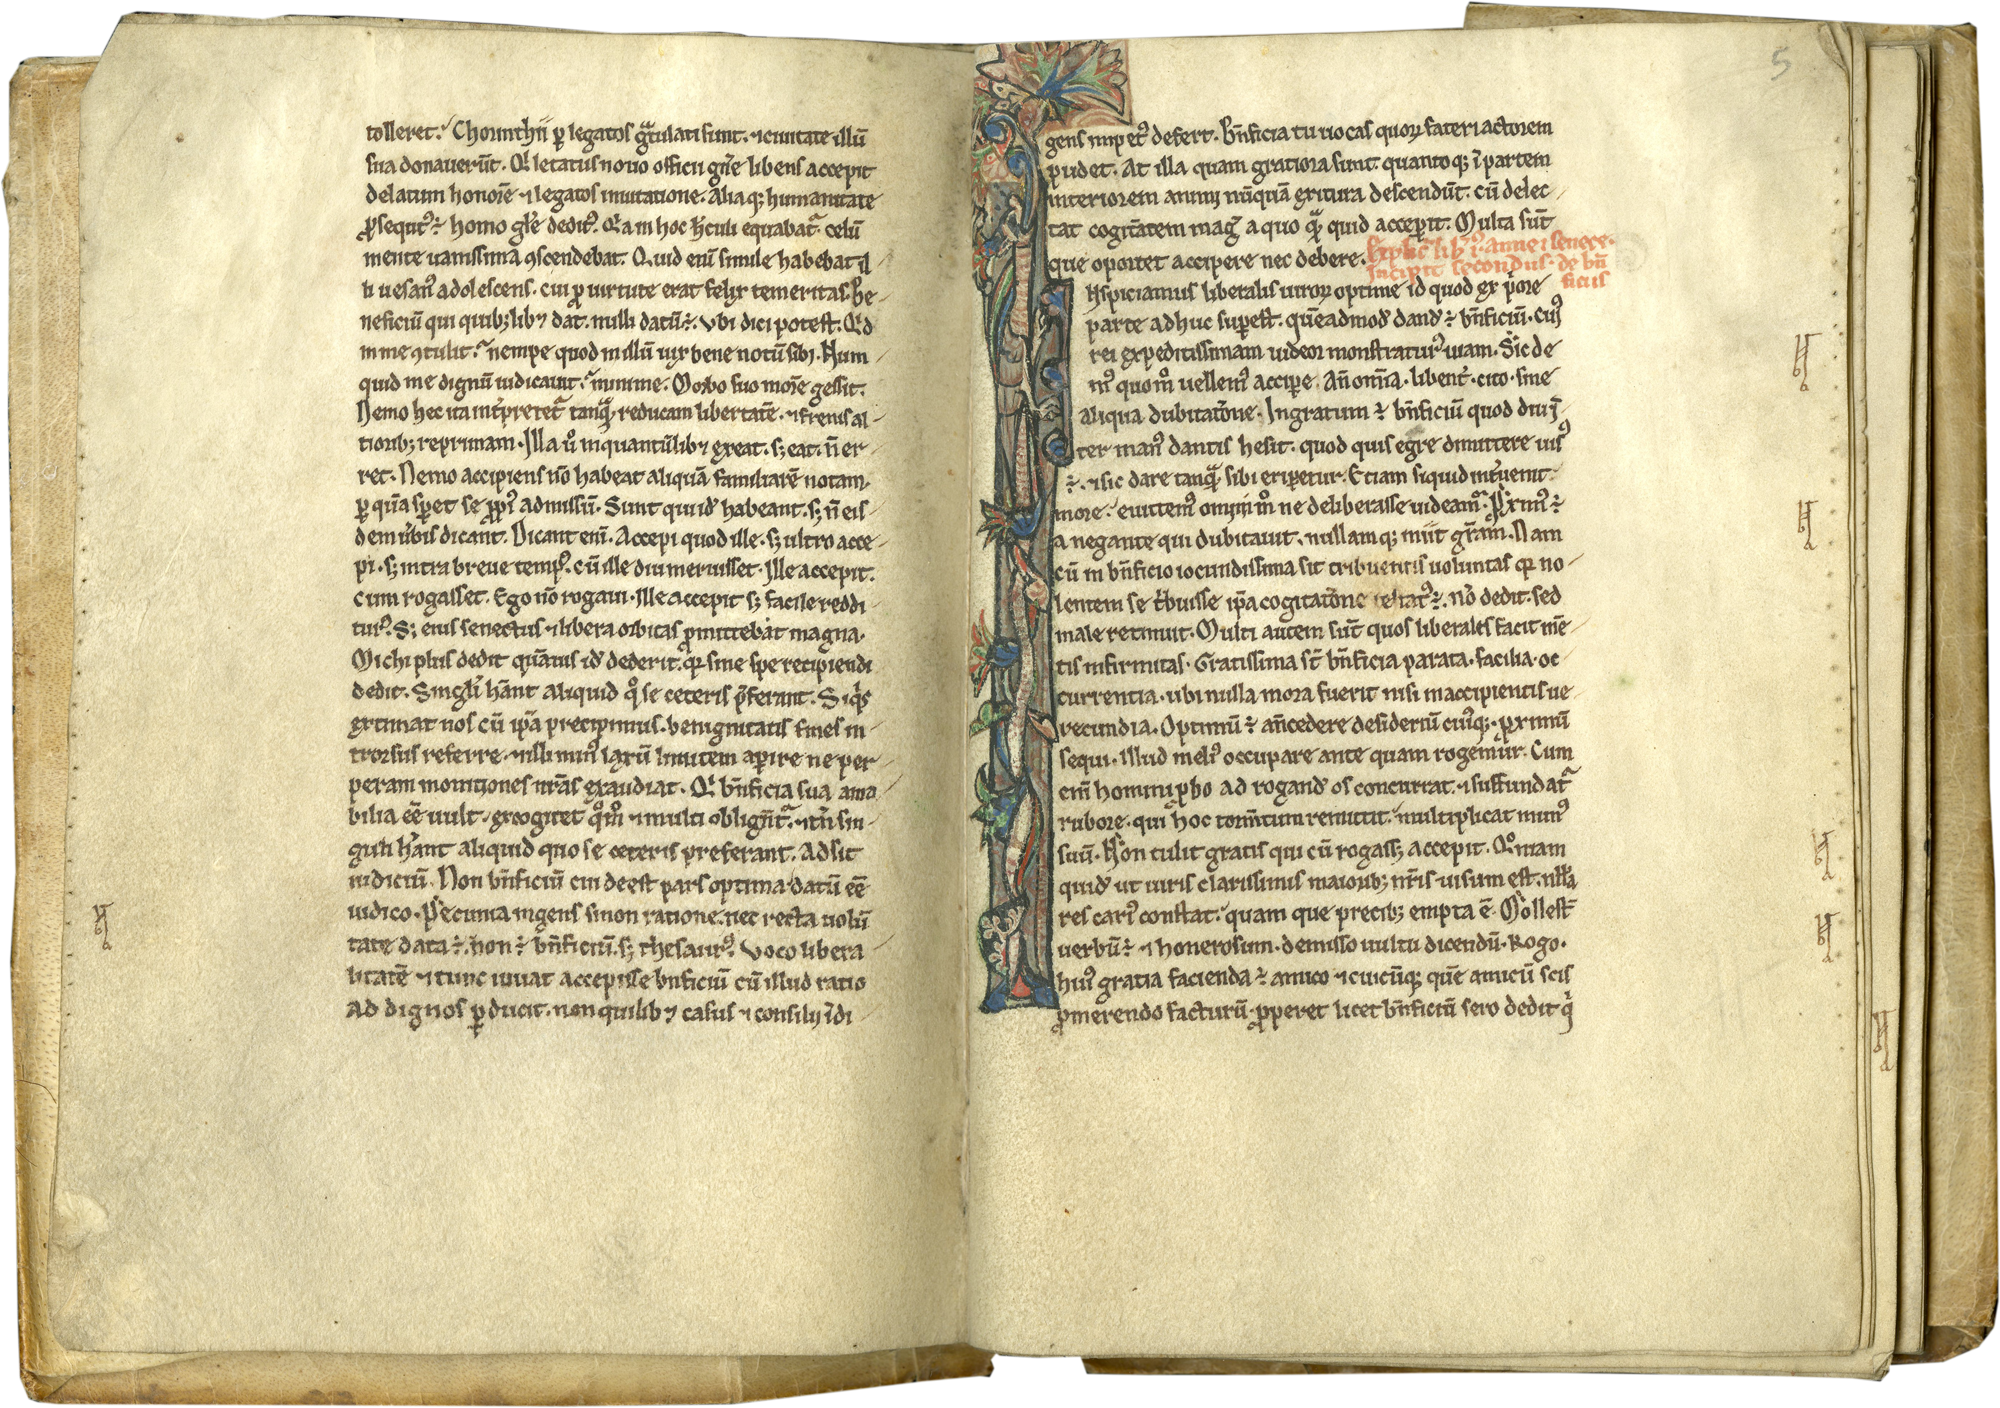 tolleret. Chorinthii ꝑ legatos gͣtulati sunt. ⁊ ciuitate illū
sua donauerūt. Qͥ letatus nouo officii gn̄e libens accepit
delatum honorē ⁊ legatos inuitatione. Aliaqꝫ humanitate
ꝓsequit᷒ ÷ homo gl̄e dedit᷒. Qͥ am hoc h̄culi equabatͣ. celū
mente uanissima ꝯscendebat. Quid enī simile habebat il
li uesan᷒ adolescens. cui ꝓ uirtute erat felix temeritas. Be
neficiū qui quibꝫlibꝫ dat. nulli datū ÷. Vbi dici potest. Qͥd
in me ꝯtulit. nempe quod in illū uix bene notū sibi. Num
quid me dignū iudicauit. minime. Morbo suo morē gessit.
Nemo hec ita int̓pretetͣ tanqͣ reducam libertatē. ⁊ frenis al
tioribꝫ reprimam. Illa u᷒ inquantūlibꝫ exeat. sꝫ eat. n̄ er
ret. Nemo accipiens nō habeat aliquā familiarē notam.
ꝑ quā sꝑet se ꝓpi᷒ admissū. Sunt qui id̄ habeant. sꝫ n̄ eis
dem ūbis dicant. Dicant enī. Accepi quod ille. sꝫ ultro acce
pi. sꝫ intra breue temp᷒. cū ille diu meruisset. Ille accepit.
cum rogasset. Ego nō rogaui. Ille accepit sꝫ facile reddi
tur᷒. Sꝫ eius senectus ⁊ libera orbitas ꝓmittebat magna.
Michi plus dedit quāuis id̄ dederit. qͣ sine spe recipiendi
dedit. Singl̄i h̄ant aliquid qͦ se ceteris p̄ferant. Siqͥs
extimat nos cū ip̄a precipimus. benignitatis fines in
trorsus referre. ⁊ illi min᷒ laxū limitem aꝑire ne per
peram monitiones nr̄as exaudiat. Qͥ bn̄ficia sua ama
bilia eē uult. excogitet qͦm̊ ⁊ multi oblign̄tͣ. ⁊ tn̄ sin
guli h̄ant aliquid quo se ceteris preferant. Adsit
iudiciū. Non bn̄ficiū cui deest pars optima datū eē
iudico. Pecunia ingens si non ratione. nec recta uolū
tate data ÷. non ÷ bn̄ficiū. sꝫ thesaur᷒. Voco libera
litatē ⁊ tunc iuuat accepisse bn̄ficiū cū illud ratio
ad dignos ꝑducit. non quilibꝫ casus ⁊ consilij īdi
5
gens impet᷒ defert. Bn̄ficia tu uocas quorꝫ fateri actorem
pudet. At illa quam gratiora sunt. quantoqꝫ ī partem
interiorem animi nūquā exitura descendūt. cū delec
tat cogitātem mag᷒ a quo qͣ quid acceperit. Multa sūt
que oportet accipere nec debere. Explic̄ lib̓ .i. annei senece.
Incipit secondus de bn̄
ficiis
Aspiciamus liberalis uirorꝫ optime id quod ex pͥore
parte adhuc suꝑest. quēadmod̄ dand̄ ÷ bn̄ficiū. cui᷒
rei expeditissimam uideor monstratur᷒ uiam. Sic de
m᷒ quom̊ uellem᷒ acciꝑe. An̄ om̄ia. libent̓. cito. sine
aliqua dubitatōne. Ingratum ÷ bn̄ficiū quod diu ī
ter man᷒ dantis hesit. quod quis egre dimittere uis᷒
÷. ⁊ sic dare tanqͣ sibi eriperetur. Etiam siquid int̓uenit
more. euitem᷒ omnim̊ ne deliberasse uideamͬ. Pxim᷒ ÷
a negante qui dubitauit. nullamqꝫ iniit gr̄am. Nam
cū in bn̄ficio iocundissima sit tribuentis uoluntas qꝛ no
lentem se tͥbuisse ip̄a cogitatōne testat᷒ ÷. nō dedit. sed
male retinuit. Multi autem sūt quos liberales facit mē
tis infirmitas. Gratissima st̄ bn̄ficia parata. facilia. oc
currentia. ubi nulla mora fuerit nisi in accipientis ue
recundia. Optimū ÷ an̄cedere desideriū cui᷒qꝫ. ꝓximū
sequi. illud meli᷒ occupare ante quam rogemur. Cum
enī homini ꝓbo ad rogand̄ os concurrat. ⁊ suffundatͣ
rubore. qui hoc tormtum remittit. multiplicat mun᷒
suū. Non tulit gratis qui cū rogassꝫ accepit. Qͦniam
quid̄ ut uiris clarissimis maioribꝫ nr̄is uisum est. nll̄a
res cari᷒ constat. quam que precibꝫ empta ē. Molest̄
uerbū ÷ ⁊ honerosum. demisso uultu dicendū. Rogo.
hui᷒ gratia facienda ÷ amico ⁊ cuicūqꝫ quē amicū scis
ꝓmerendo facturū. ꝓperet licet bn̄ficiū sero dedit qͥ